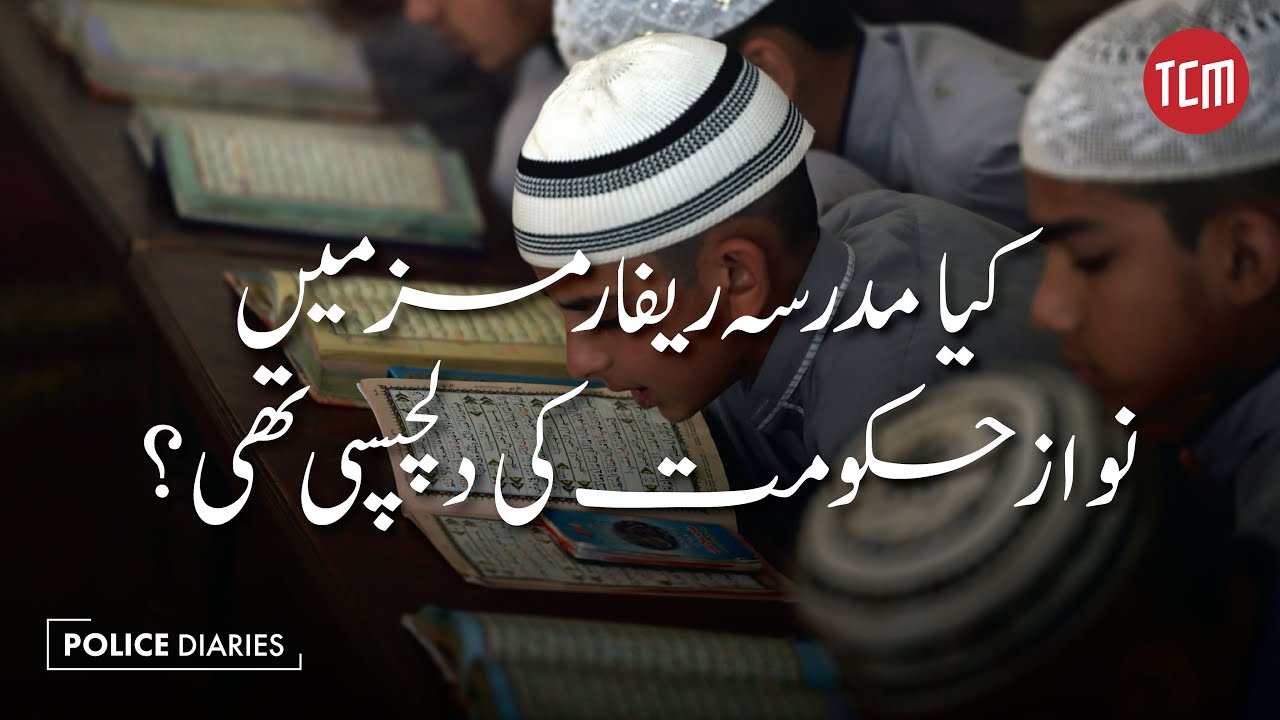 TCM
کیا مدرسہ ریفارمز میں
نواز حکومت کی دلچسپی تھی؟
POLICE DIARIES